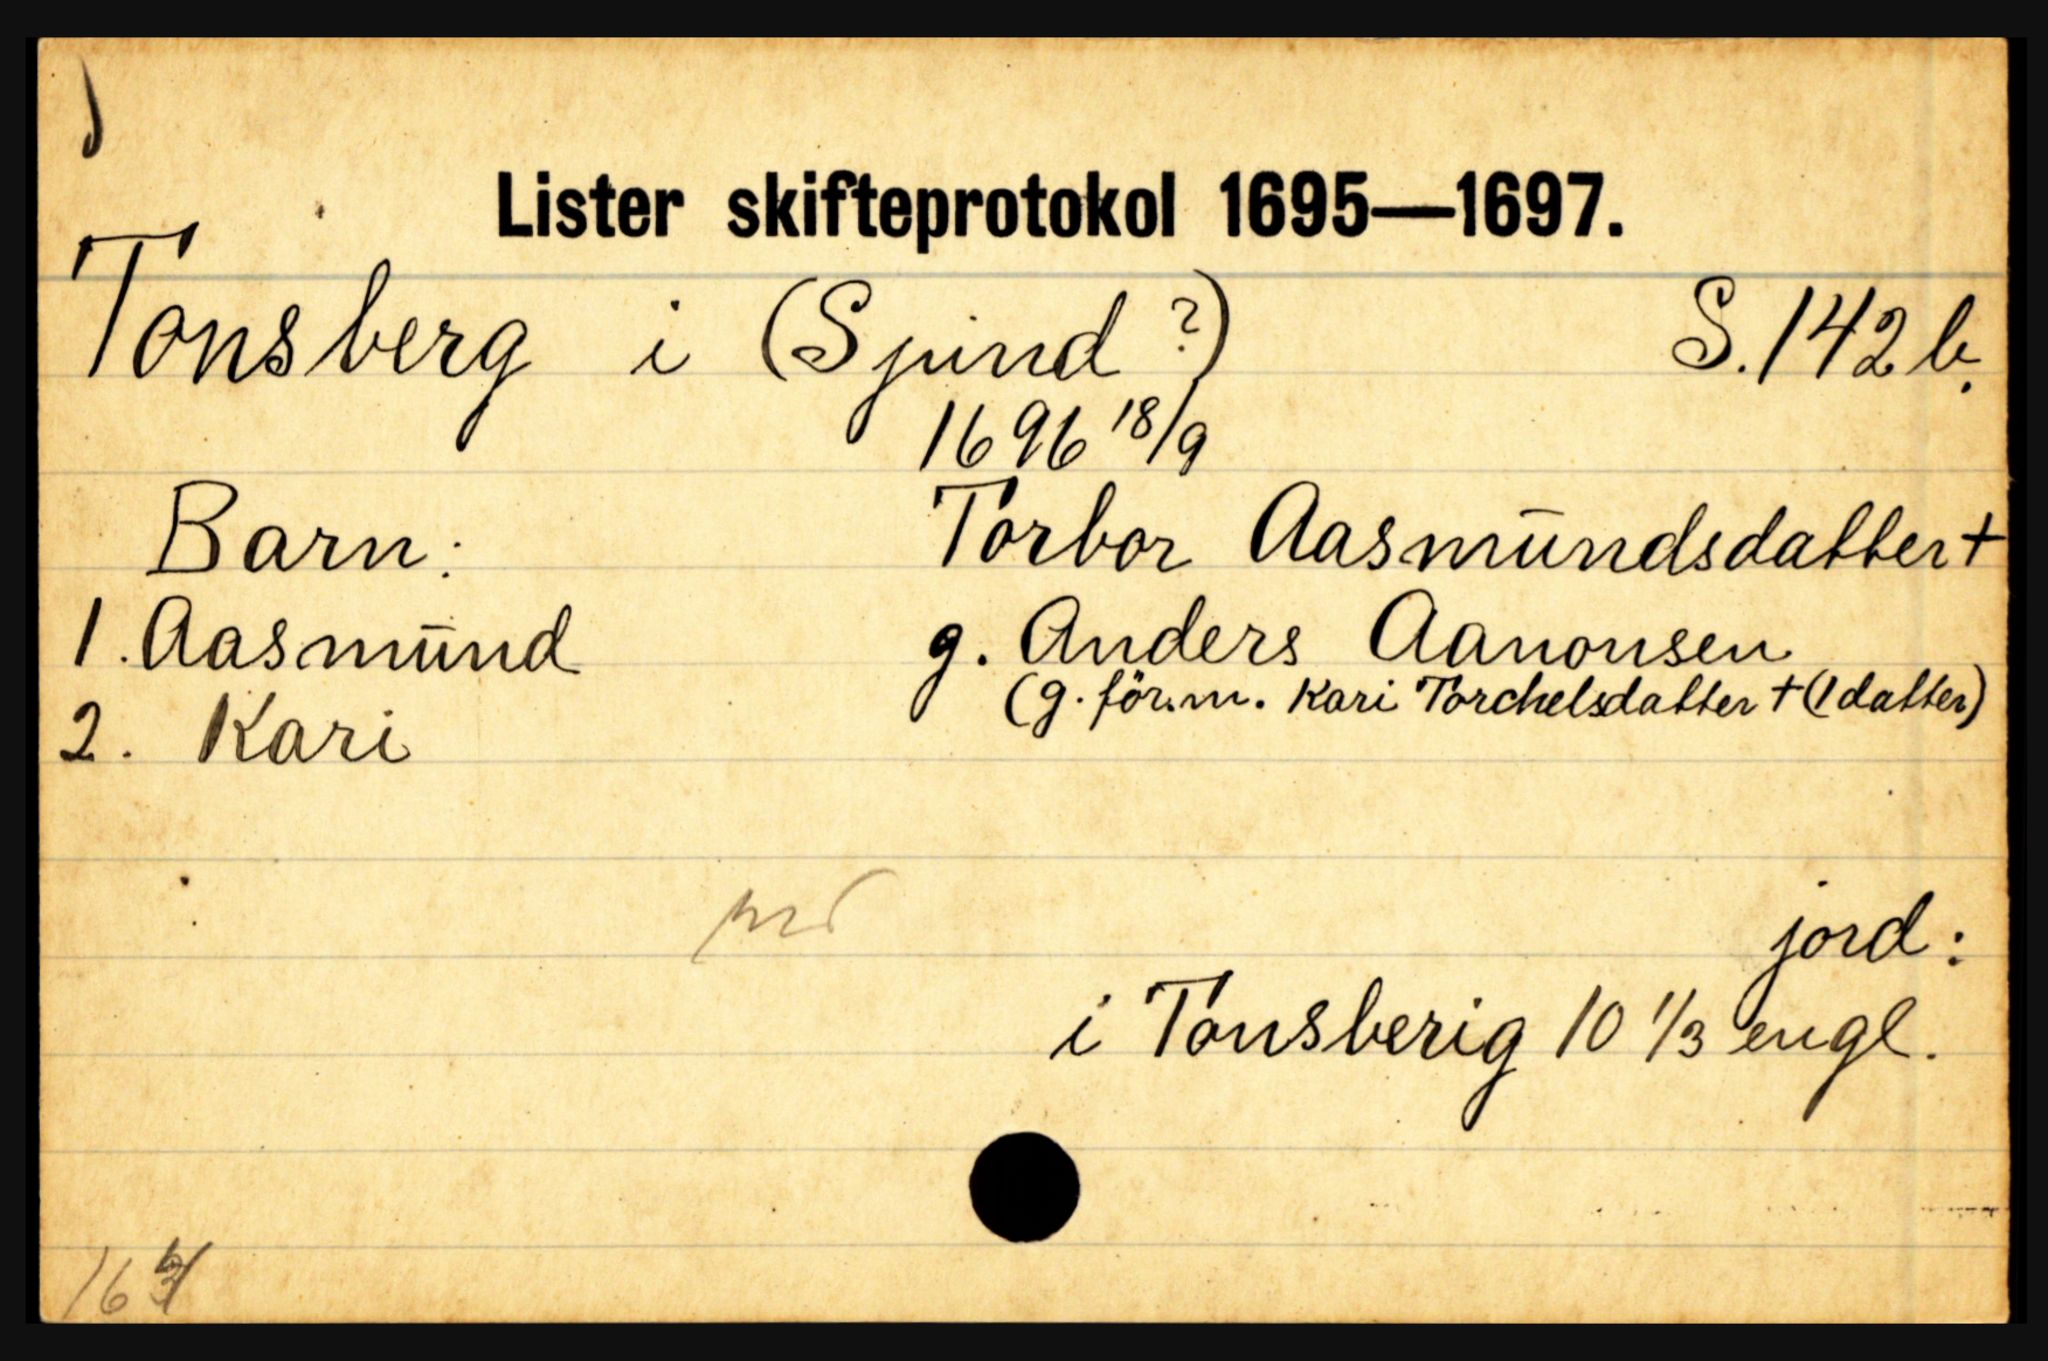 Lister skifteprotokol 1695—1697.
Tonsberg i (Spind?) S. 142 b.
1696 18/9
Barn: Torbor Aasmūndsdatter +
1. Aasmūnd g. Anders Aanonsen
(g. för. m. Kari Torchelsdatter + (1 datter)
2. Kari
jord:
i Tonsberig 10 1/3 engl.